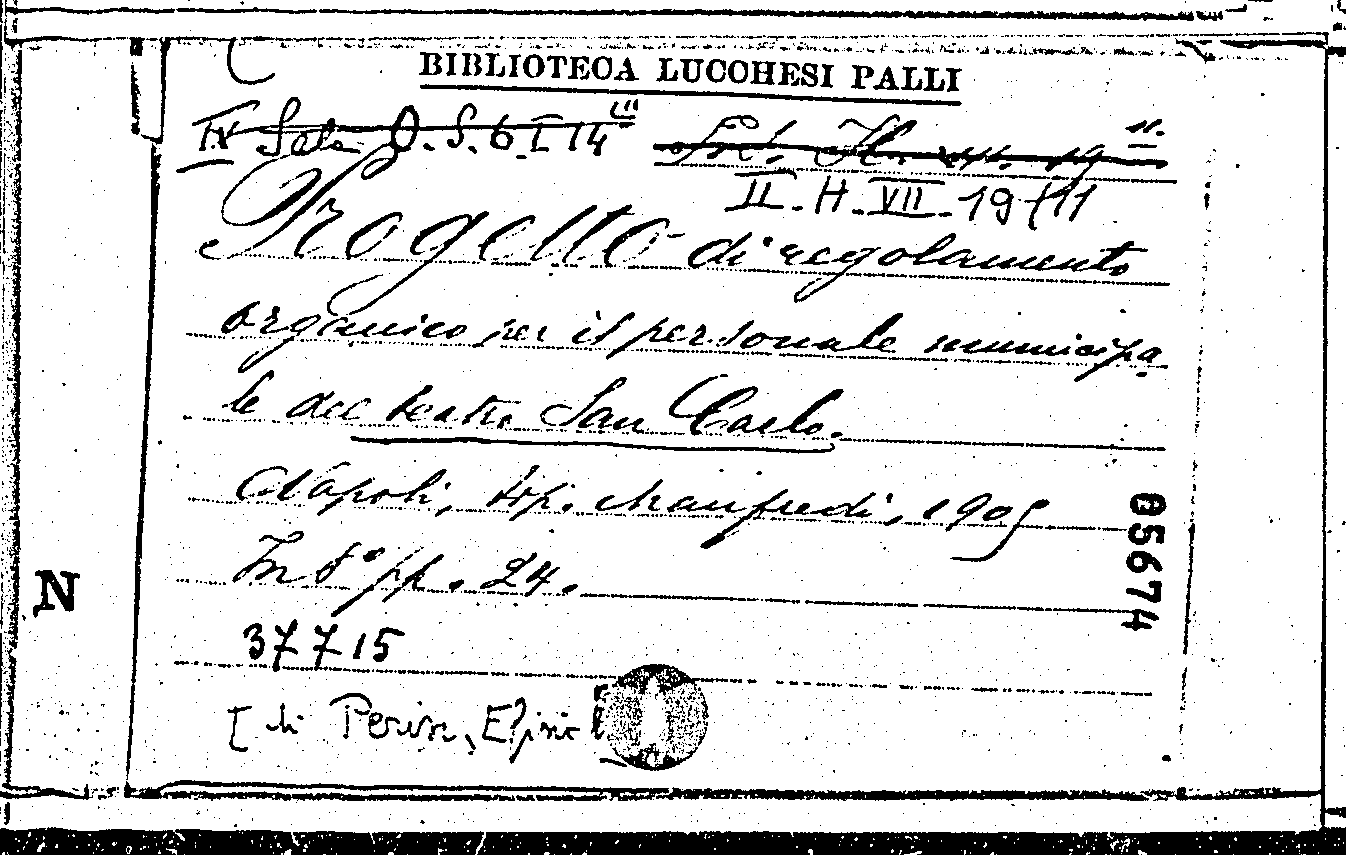 BIBLIOTECA LUCCHESI PALLI
IX Sala O. S. 6. I 14
II. H. VII. 19 /11
Progetto di regolamento
organico per il personale municipa
le del teatro San Carlo.
Napoli, tip. Manfredi, 1905
In 8° pp. 24.
37715
[di
05674
N